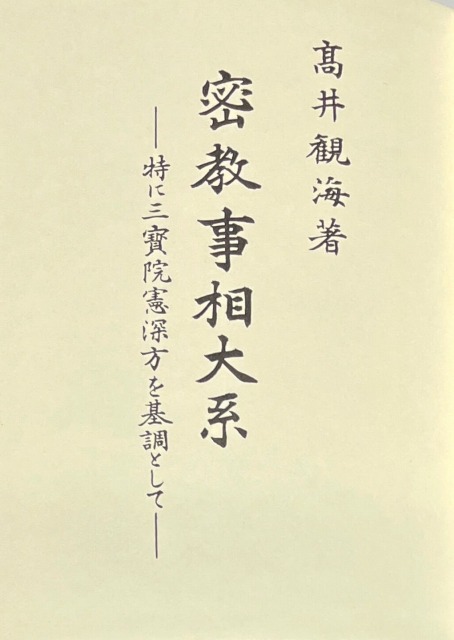 髙井観海著
密教事相大系
―特に三寶院憲深方を基調として―